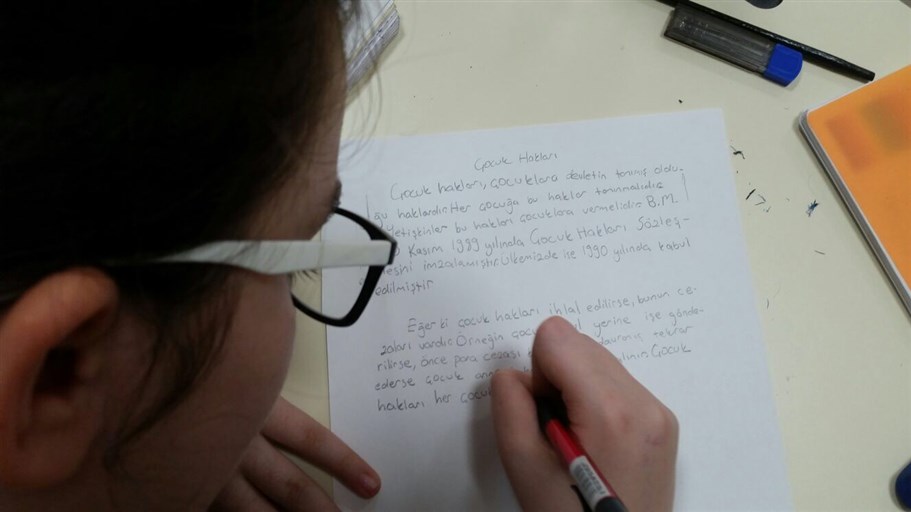 Çocuk Hakları
Çocuk hakları, çocuklara devletin tanımış oldu-
ğu haklardır. Her çocuğa bu haklar tanınmalıdır.
Yetişkinler bu hakları çocuklara vermelidir. B.M.
Kasım 1989 yılında Çocuk Hakları Sözleş-
mesini imzalamıştır. Ülkemizde ise 1990 yılında kabul
edilmiştir
Eğer ki çocuk hakları ihlal edilirse, bunun ce-
zaları vardır. Örneğin yerine işe gönde-
rilirse, önce para cezası tekrar
ederse çocuk Çocuk
hakları her